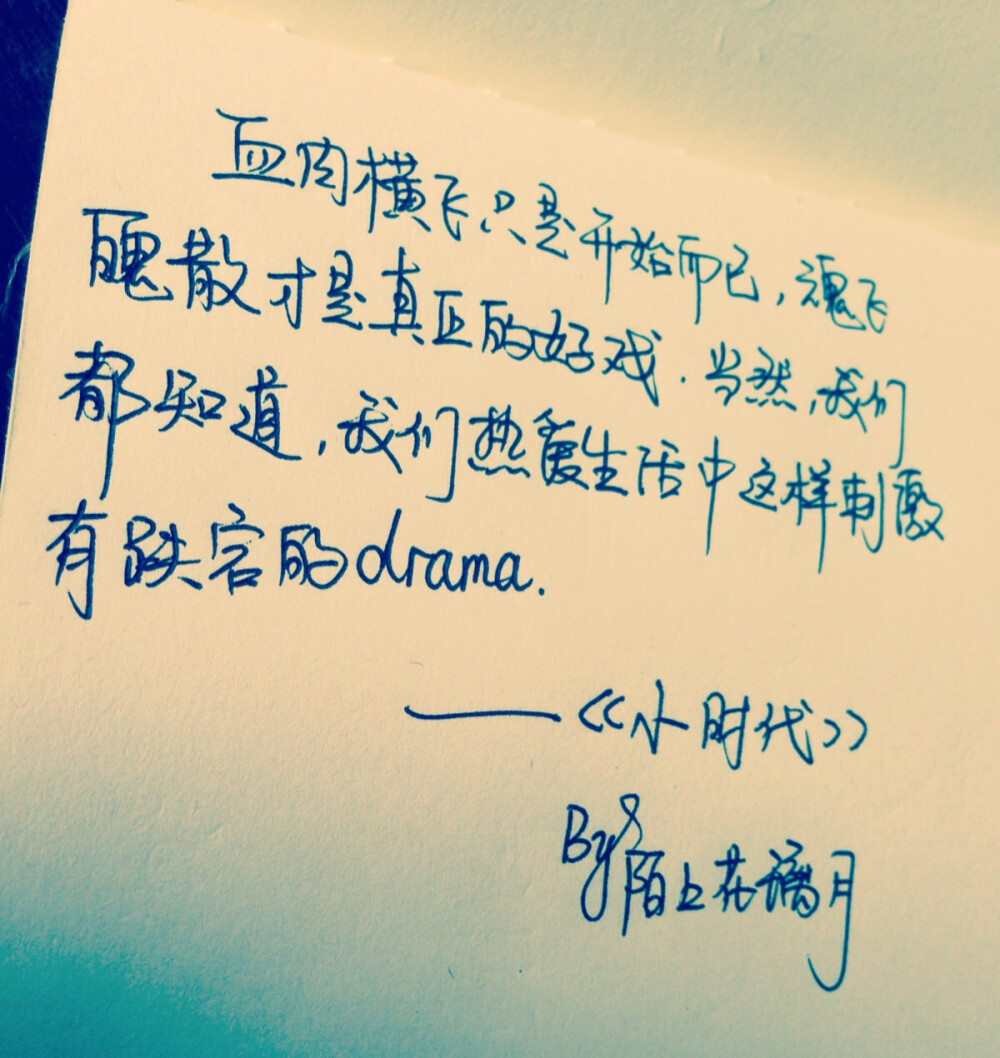 血肉横飞只是开始而已，魂飞
魄散才是真正的好戏．当然，我们
都知道，我们热爱生活中这样刺激
有跌宕的drama.
——《小时代》
By 陌上花漪月